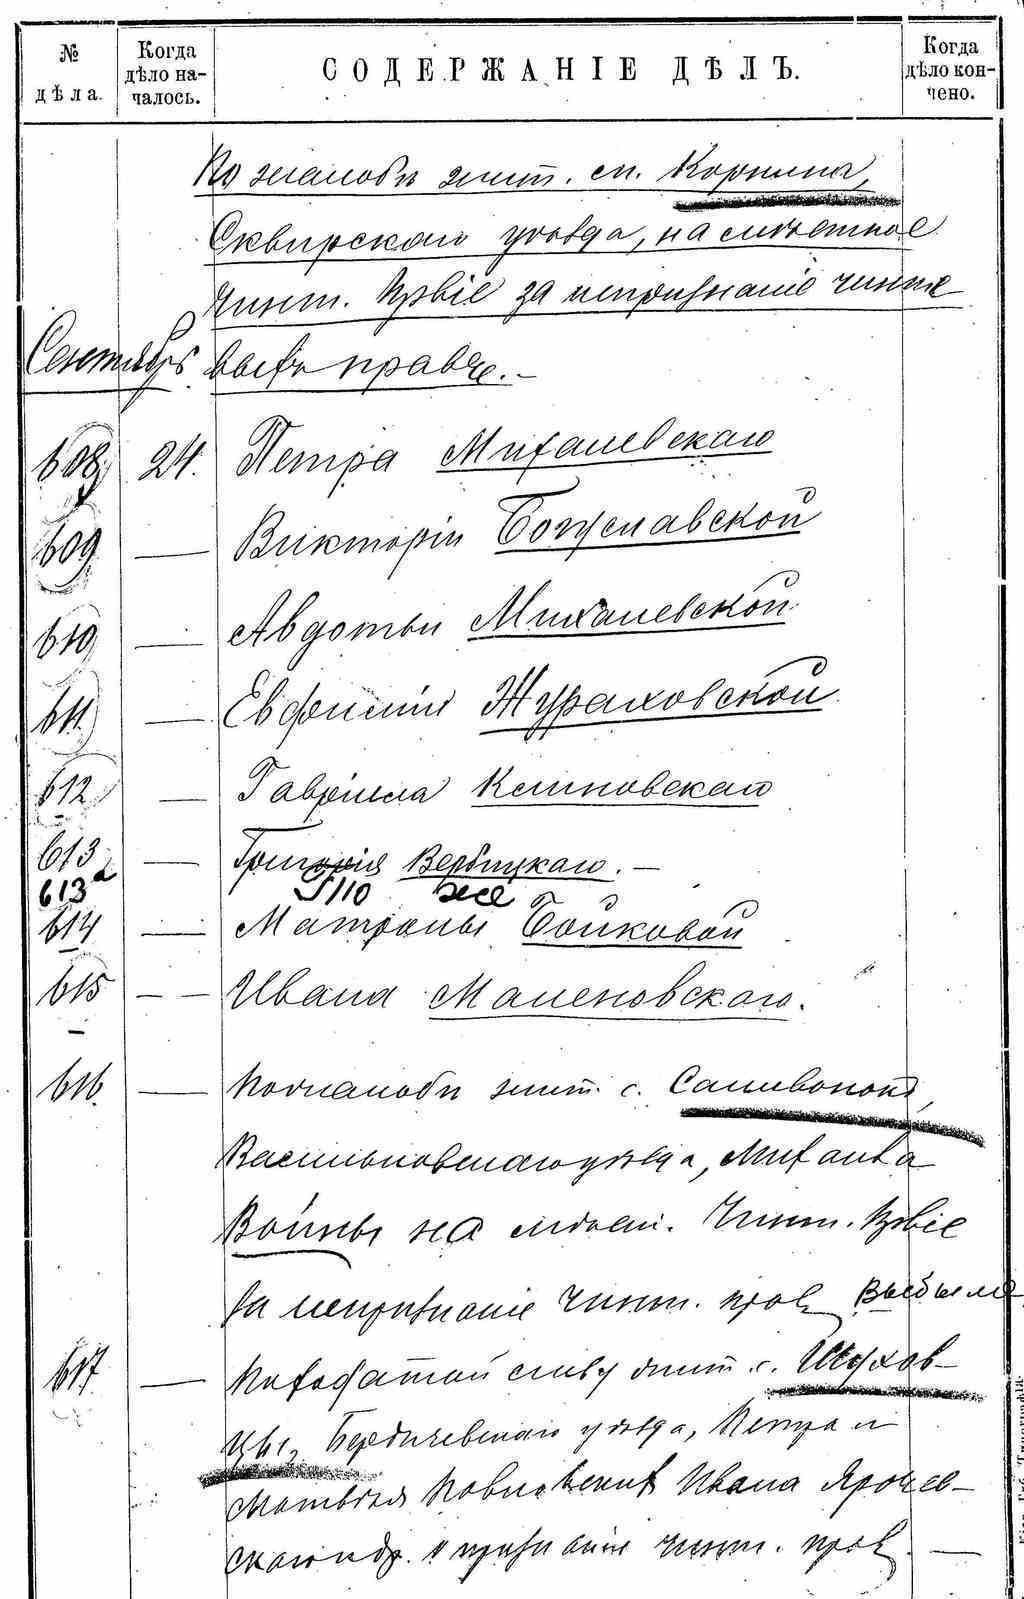 № дѣла.
Когда дѣло началось.
СОДЕРЖАНІЕ ДѢЛЪ.
Когда дѣло кончено.
По жалобѣ жит. м. Корнина,
Сквирскаго уѣзда, на мѣстное
Чинш. Пр‍‍ствіе за непризнаніе чинше
Сентябрь. выхъ правъ. –
608 24. Петра Михалевскаго
609 — Викторіи Богуславской
610 — Авдотьи Михалевской
611. — Евфиміи Жураховской
612 — Гавріила Клиновскаго
613 — Григорія Вербицкаго. –
613а Его же
614 — Матроны Бойковой
615 – – Ивана Маленовскаго.
616. — По жалобѣ жит. с. Саливонокъ,
Васильковскаго уѣзда, Михаила
Войны на мѣст. Чинш.
за непризнаніе чинш. прав Выбыло
617 — По ходатайству жит. с. Шухов–
цы, Бердичевскаго уѣзда, Петра и
Матвѣя Ивана Ярошев–
скаго и др. о признаніи чинш. прав. —